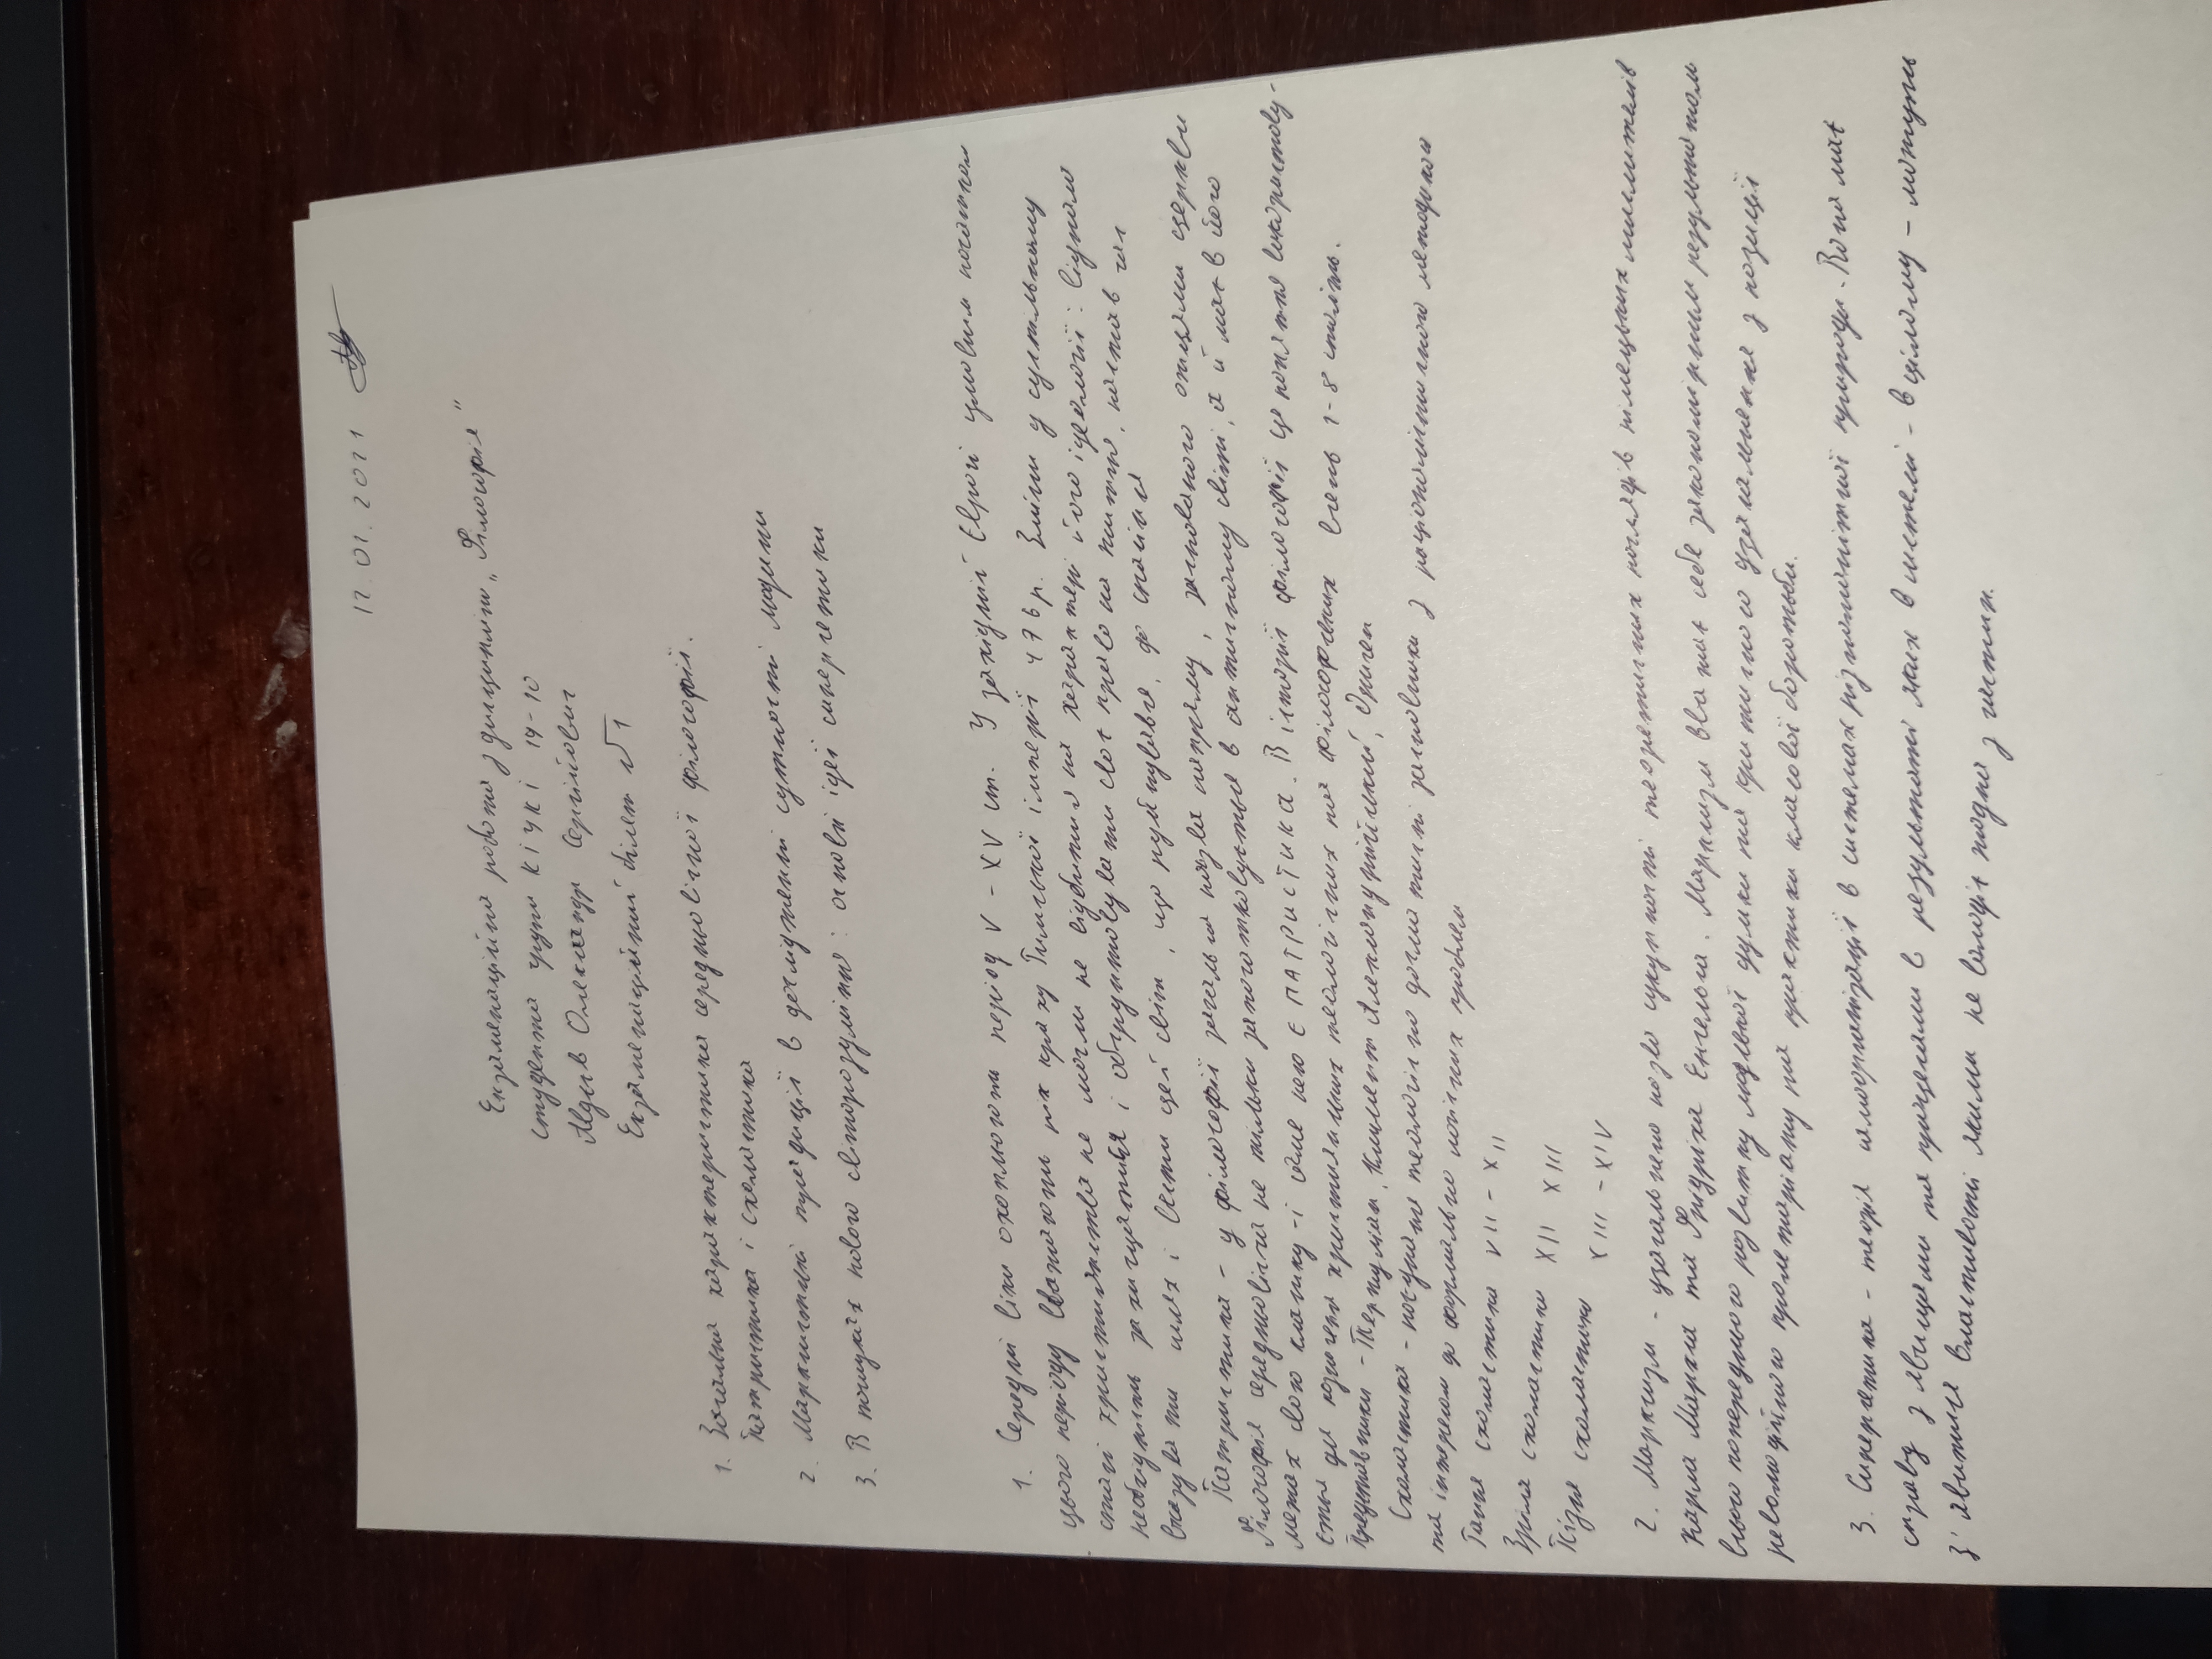 12.01.2021
Екзаменаційна робота з дисципліни „Філософія"
студента групи КІУКІ 19-10
Олександр Сергійович
Екзаменаційний білет №1
1. Загальна характеристика середньовічної філософії.
Патристика і схоластика
2. Марксистські традиції в дослідженні сутності людини
3. В пошуках нового світорозуміння: основні ідеї синергетики
1. Середні віки охоплюють період V - XV ст. У західній Європі умовним початком
цього періоду вважають рік краху Римської імперії 476 р. Зміни у суспільному
стані християнства не могли не відбитися на характері його ідеології: віднало
необхідність захищатися і обґрунтовувати своє право на життя, настав час
вказувати шлях і вести цей світ, що руйнувався, до спасіння
Патристика - у філософії загальна назва напряму, заснованого отцями церкви
Філософія середньовіччя не тільки започатковується в античному світі, а й має в його
межах свою класику - і саме нею є ПАТРИСТИКА. В історії філософії це поняття використову-
ється для позначення християнських теологічних та філософських вчень 1-8 століть.
Представники - Тертуліан, Климент Александрійський, Ориген
Схоластика - поєднання теологічно догматичні засновники з раціоналістичного методикою
та інтересом до формально логічних проблем
Рання схоластика VII - XII
Зріла схоластика XII XIII
Пізня схоластика XIII - XIV
2. Марксизм - узагальнена назва сукупності теоретичних поглядів німецьких мислителів
Карла Маркса та Фрідріха Енгельса. Марксизм вважає себе закономірним результатом
всього попереднього розвитку людської думки та критичного узагальнення з позиції
революційного пролетаріату та практики класової боротьби.
3. Синергетика - теорія самоорганізації в системах різноманітної природи. Вона має
справу з явищами та процесами в результаті яких в системі - в цілому - можуть
з'явитися властивості якими не володіє жодна з частин.